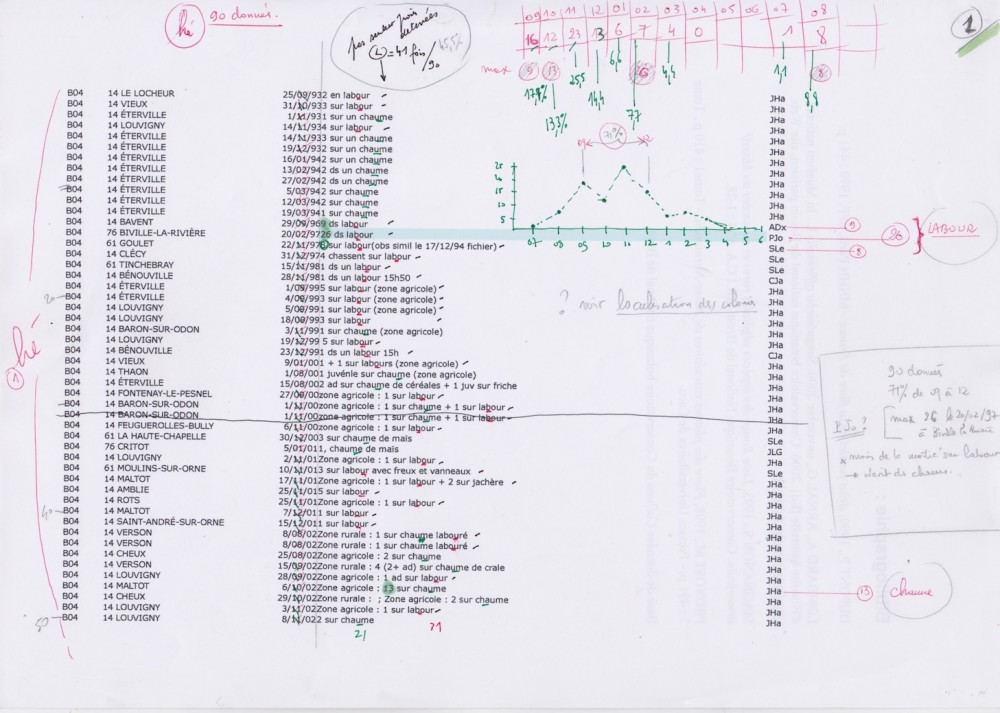 hé 90 donnés.
par rapport
(L) = 41 fois / 90 45,5%
1
09 10 11 12 01 02 03 04 05 06 07 08
16 12 23 13 6 7 4 0 1 8
max 9 13 26 8
17,8% 13,3% 25,5 14,4 6,6 7,7 4,4 1,1 8,8
B04 14 LE LOCHEUR 25/09/932 en labour JHa
B04 14 VIEUX 31/10/933 sur labour JHa
B04 14 ÉTERVILLE 1/11/931 sur un chaume JHa
B04 14 LOUVIGNY 14/11/934 sur labour JHa
B04 14 ÉTERVILLE 14/11/933 sur un chaume JHa
B04 14 ÉTERVILLE 19/12/932 sur un chaume JHa
B04 14 ÉTERVILLE 16/01/942 sur un chaume JHa
B04 14 ÉTERVILLE 13/02/942 ds un chaume JHa
B04 14 ÉTERVILLE 27/02/942 ds un chaume JHa
B04 14 ÉTERVILLE 5/03/942 sur chaume JHa
B04 14 ÉTERVILLE 12/03/942 sur chaume JHa
B04 14 ÉTERVILLE 19/03/941 sur chaume JHa
B04 14 BAVENT 29/09/969 ds labour ADx
B04 76 BIVILLE-LA-RIVIÈRE 20/02/9726 ds labour PJo
B04 61 GOULET 22/11/976 sur labour(obs simil le 17/12/94 fichier) SLe
B04 14 CLÉCY 31/12/974 chassent sur labour SLe
B04 61 TINCHEBRAY 15/11/981 ds un labour SLe
B04 14 BÉNOUVILLE 28/11/981 ds un labour 15h50 CJa
B04 14 ÉTERVILLE 1/09/995 sur labour (zone agricole) JHa
20 B04 14 ÉTERVILLE 4/09/993 sur labour (zone agricole) JHa
B04 14 LOUVIGNY 5/09/991 sur labour (zone agricole) JHa
B04 14 LOUVIGNY 18/09/993 sur labour JHa
B04 14 BARON-SUR-ODON 3/11/991 sur chaume (zone agricole) JHa
B04 14 LOUVIGNY 19/12/99 5 sur labour JHa
B04 14 BÉNOUVILLE 23/12/991 ds un labour 15h CJa
B04 14 VIEUX 9/01/001 + 1 sur labours (zone agricole) JHa
B04 14 THAON 1/08/001 juvénle sur chaume (zone agricole) JHa
B04 14 ÉTERVILLE 15/08/002 ad sur chaume de céréales + 1 juv sur friche JHa
B04 14 FONTENAY-LE-PESNEL 27/09/00zone agricole : 1 sur labour JHa
B04 14 BARON-SUR-ODON 1/11/00zone agricole : 1 sur chaume + 1 sur labour JHa
B04 14 BARON-SUR-ODON 1/11/00zone agricole : 1 sur chaume + 1 sur labour JHa
B04 14 FEUGUEROLLES-BULLY 6/11/00zone agricole : 1 sur labour JHa
B04 61 LA HAUTE-CHAPELLE 30/12/003 sur chaume de maïs SLe
B04 76 CRITOT 5/01/011, chaume de maïs JLG
B04 14 LOUVIGNY 2/11/01Zone agricole : 1 sur labour JHa
B04 61 MOULINS-SUR-ORNE 10/11/013 sur labour avec freux et vanneaux SLe
B04 14 MALTOT 17/11/01Zone agricole : 1 sur labour + 2 sur jachère JHa
B04 14 AMBLIE 25/11/015 sur labour JHa
B04 14 ROTS 25/11/01Zone agricole : 1 sur labour JHa
40 B04 14 MALTOT 7/12/011 sur labour JHa
B04 14 SAINT-ANDRÉ-SUR-ORNE 15/12/011 sur labour JHa
B04 14 VERSON 8/08/02Zone rurale : 1 sur chaume labouré JHa
B04 14 VERSON 8/08/02Zone rurale : 1 sur chaume labouré JHa
B04 14 CHEUX 25/08/02Zone agricole : 2 sur chaume JHa
B04 14 VERSON 15/09/02Zone rurale : 4 (2+ ad) sur chaume de crale JHa
B04 14 LOUVIGNY 28/09/02Zone agricole : 1 ad sur labour JHa
B04 14 MALTOT 6/10/02Zone agricole : 13 sur chaume JHa
B04 14 CHEUX 29/10/02Zone rurale : ; Zone agricole : 2 sur chaume JHa
B04 14 LOUVIGNY 3/11/02Zone agricole : 1 sur labour JHa
50 B04 14 LOUVIGNY 8/11/022 sur chaume JHa
21 31
hé
1
71%
09 12
25
20
15
10
5
07 08 09 10 11 12 1 2 3 4 5 6
9
26 LABOUR
8
? voir localisation des colonies
90 donnés
71% de 09 à 12
PJo ? max 26 le 20/02/97
à Biville la Rivière
* moins de la moitié sur labour
13 chaume